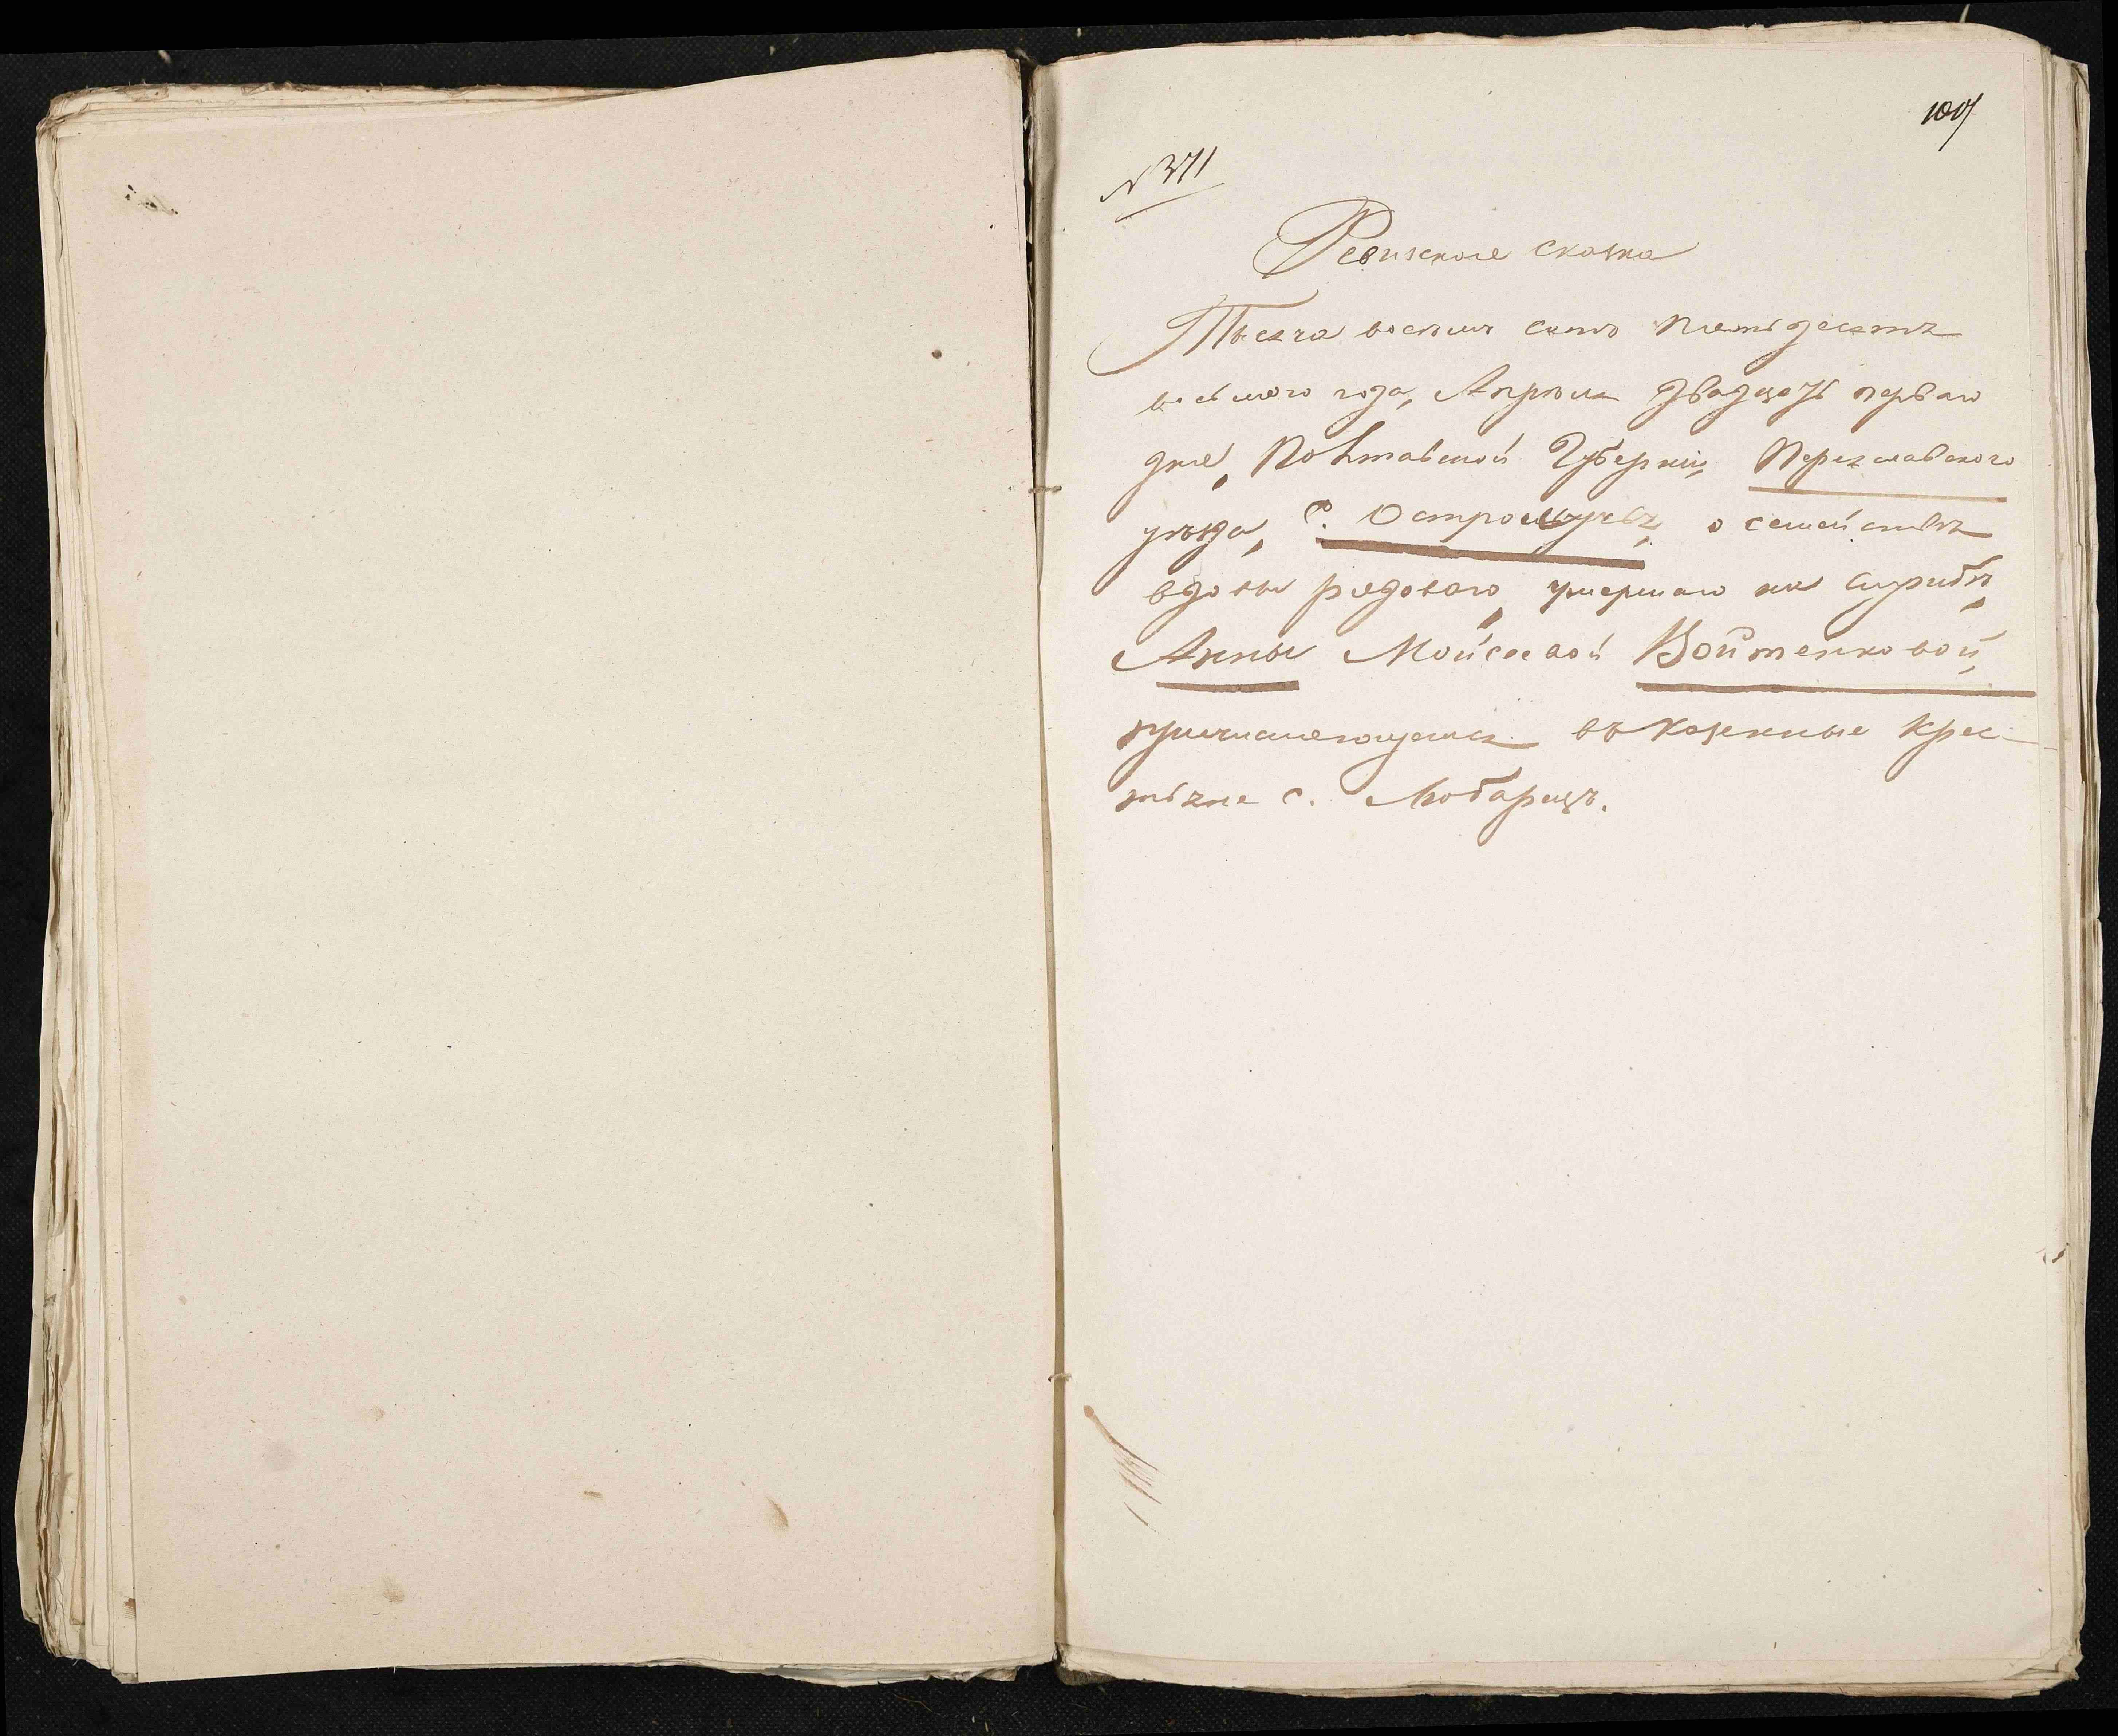 № 371
Ревизская сказка
Тысяча восемь сотъ пятьдесятъ
восьмого года, Апрѣля двадцать перваго
дня, Полтавской Губерніи, Переяславского
уѣзда, с. Остролучья, о семействѣ
вдовы рядоваго, умершаго на службѣ,
Анны Мойсеевой Войтенковой,
причисляющемся въ казенные крес-
тьяне с. Любарецъ.